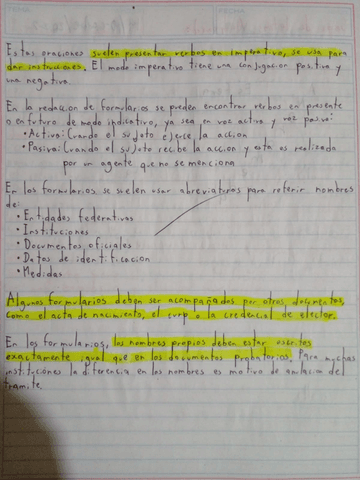 FECHA
Estas oraciones suelen presentar verbos en imperativo, se usa para
dar instrucciones. El modo imperativo tiene una conjugacion positiva y
una negativa.
En la redaccion de formularios se pueden encontrar verbos en presente
o en futuro de modo indicativo, ya sea en voz activa y voz pasiva:
• Activa: Cuando el sujeto ejerse la accion
• Pasiva: Cuando el sujeto recibe la accion y esta es realizada
por un agente que no se menciona
En los formularios se suelen usar abreviaturas para referir nombres
de:
• Entidades federativas
• Instituciones
• Documentos oficiales
• Datos de identificacion
• Medidas
Algunos formularios deben ser acompañados por otros documentos,
como el acta de nacimiento, el curp o la credencial de elector.
En los formularios, los nombres propios deben estar escritos
exactamente igual que en los documentos probatorios. Para muchas
instituciones la diferencia en los nombres es motivo de anulacion del
tramite.